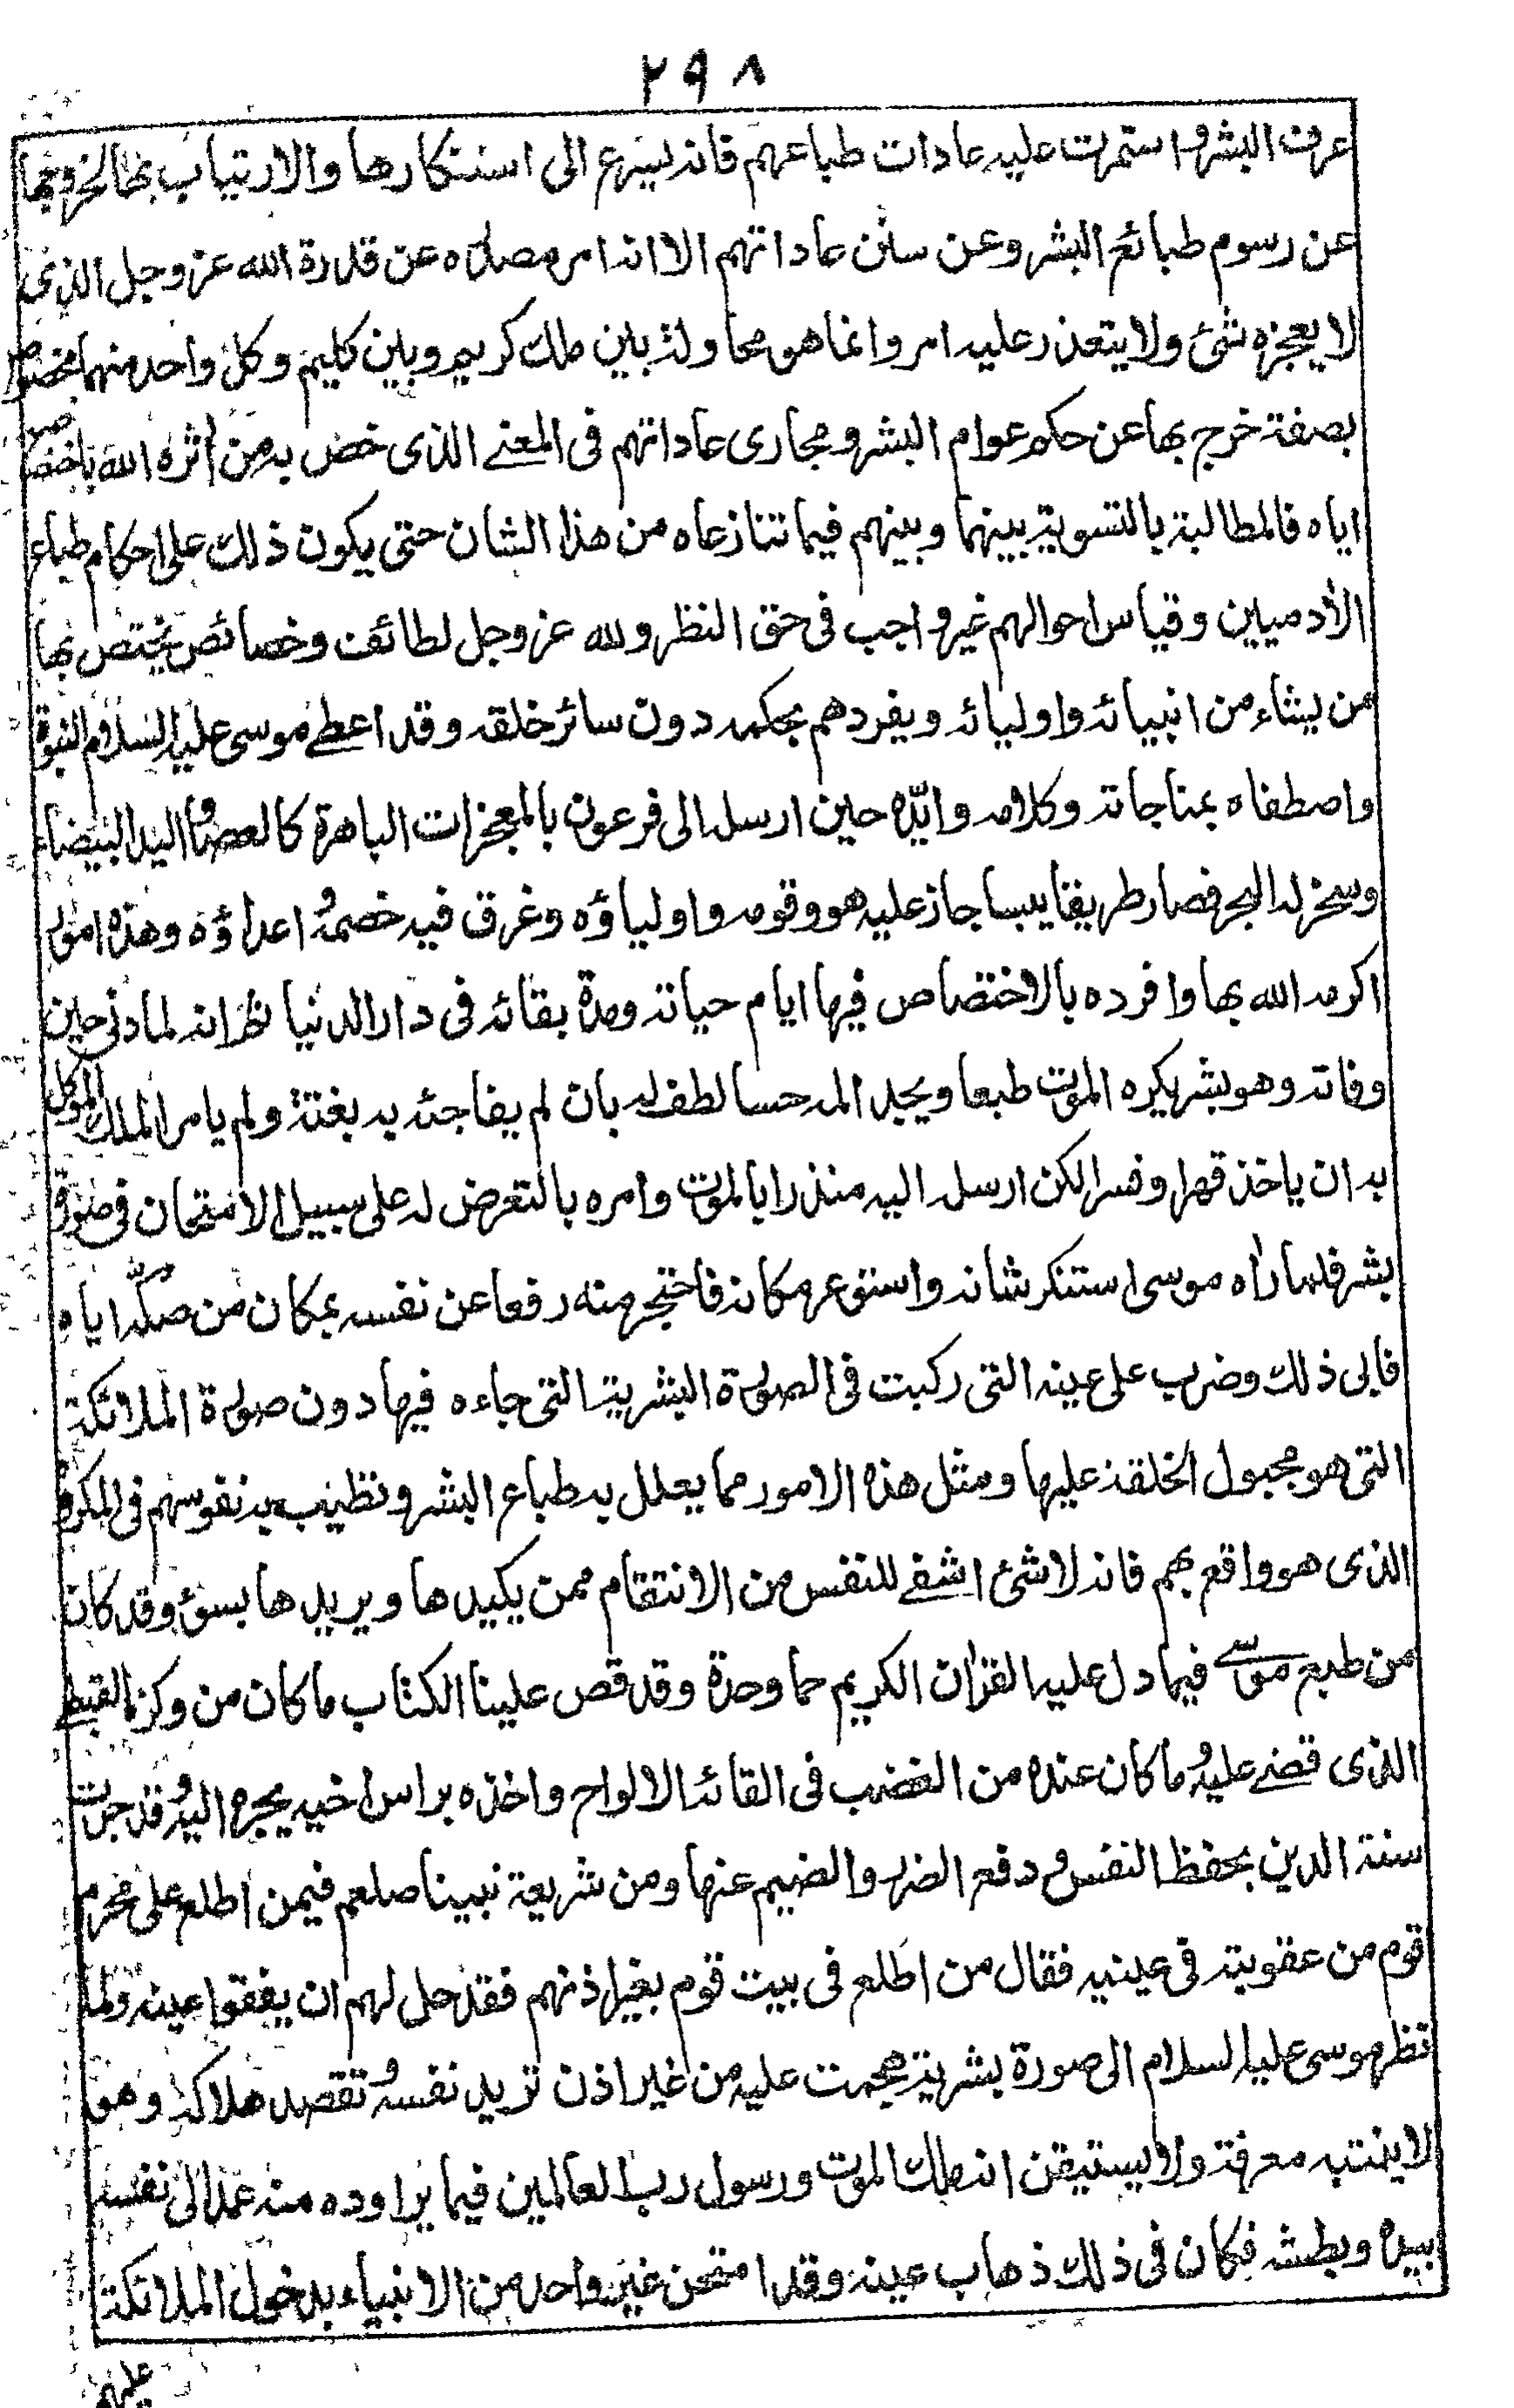 ٢٩٨
عرف البشر واستمرت عليه عادات طباعهم فانه يسرع الى استنكارها والارتياب بها لخروجها
عن رسوم طبائع البشر وعن سنن عاداتهم الا انه امر مصدره عن قدرة الله عز وجل الذى
لا يعجزه شئ ولا يتعذر عليه امر وانما هو محاولة بين ملك كريم وبين كليم وكل واحد منهما مخصوص
بصفة خرج بها عن حكم عوام البشر ومجارى عاداتهم فى المعنے الذى خص به من اثره الله باختصاصه
اياه فالمطالبة بالتسوية بينهما وبينهم فيما تنازعاه من هذا الشان حتى يكون ذلك على احكام طباع
الأدميين وقياس احوالهم غير واجب فى حق النظر ولله عز وجل لطائف وخصائص يختص بها
من يشاء من انبيائه واوليائه ويفردهم بحكمه دون سائر خلقه وقد اعطے موسى عليه السلام النبوة
واصطفاه بمناجاته وكلامه وايّده حين ارسل الى فرعون بالمعجزات الباهرة كالعصا واليد البيضاء
وسخر له البحر فصار طريقا يبسا جاز عليه هو وقومه واولياؤه وغرق فيه خصمه واعداؤه وهذه امور
اكرمه الله بها وافرده بالاختصاص فيها ايام حياته ومدة بقائه فى دار الدنيا ثم انه لما دنى حين
وفاته وهو بشر يكره الموت طبعا ويجد المه حسا لطف له بان لم يفاجئه به بغتة ولم يامر الملك الموكل
به ان ياخذ قهرا وقسرا لكن ارسل اليه منذرا بالموت وامره بالتعرض له على سبيل الامتحان فى صورة
بشر فلما رأه موسى استنكر شانه واستوعر مكانه فاحتجر منه دفعا عن نفسه بمكان من صكّه اياه
فاتى ذلك وضرب على عينه التى ركبت فى الصورة البشرية التى جاءه فيها دون صورة الملائكة
التى هو مجبول الخلقة عليها ومثل هذه الامور مما يعلل به طباع البشر وتطيب به نفوسهم فى المكروه
الذى هو واقع بهم فانه لا شئ اشفے للنفس من الانتقام ممن يكيدها ويريدها بسوء وقد كان
من طبع موسے فيما دل عليه القرأن الكريم حما وحدة وقد قص علينا الكتاب ما كان من وكزه القبطے
الذى قضے عليه وما كان عنده من الغضب فى القائه الالواح واخذه براس اخيه يجره اليه وقد جرت
سنة الدين بحفظ النفس ودفع الضرر والضيم عنها ومن شريعة نبينا صلعم فيمن اطلع على محرم
قوم من عقوبته فى عينيه فقال من اطلع فى بيت قوم بغير اذنهم فقد حل لهم ان يفقوا عينه ولما
نظر موسى عليه السلام الى صورة بشرية هجمت عليه من غير اذن تريد نفسه وتقصد هلاكه وهو
لا يثبته معرفة ولا يستيقن انه ملك الموت ورسول رب العالمين فيما يراوده منه عمد الى نفسه
بيده وبطشه فكان فى ذلك ذهاب عينه وقد امتحن غير واحد من الانبياء بدخول الملائكة
عليهم